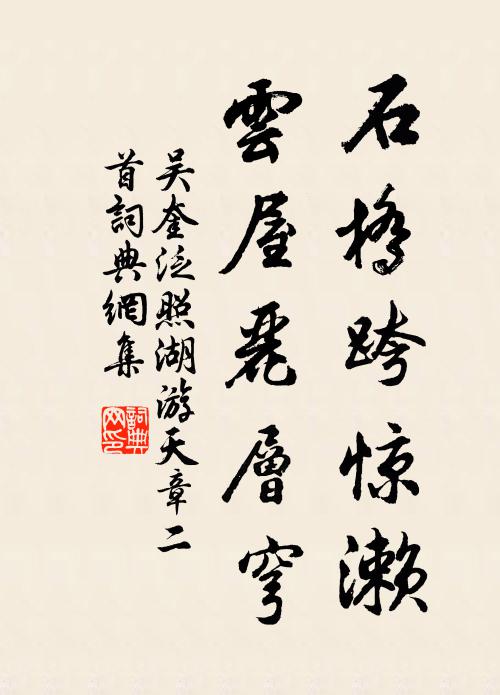 石橋跨惊濑
雲屋麗層穹
吴奎泛照湖游天章二
首詞典網集
詞典网印